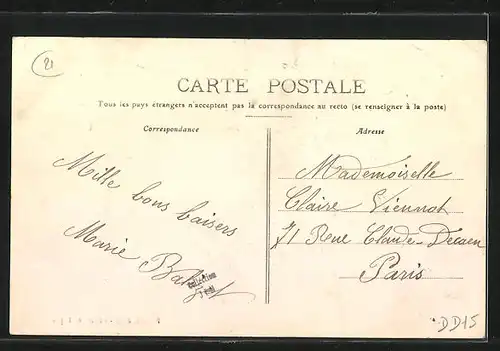 21
CARTE POSTALE
Tous les pays étrangers n'acceptent pas la correspondance au recto (se renseigner à la poste)
Correspondance
Mille bons baisers
Marie
Collection
Adresse
Mademoiselle
Claire Viennot
71 Rue Claude Decaen
Paris
DD15